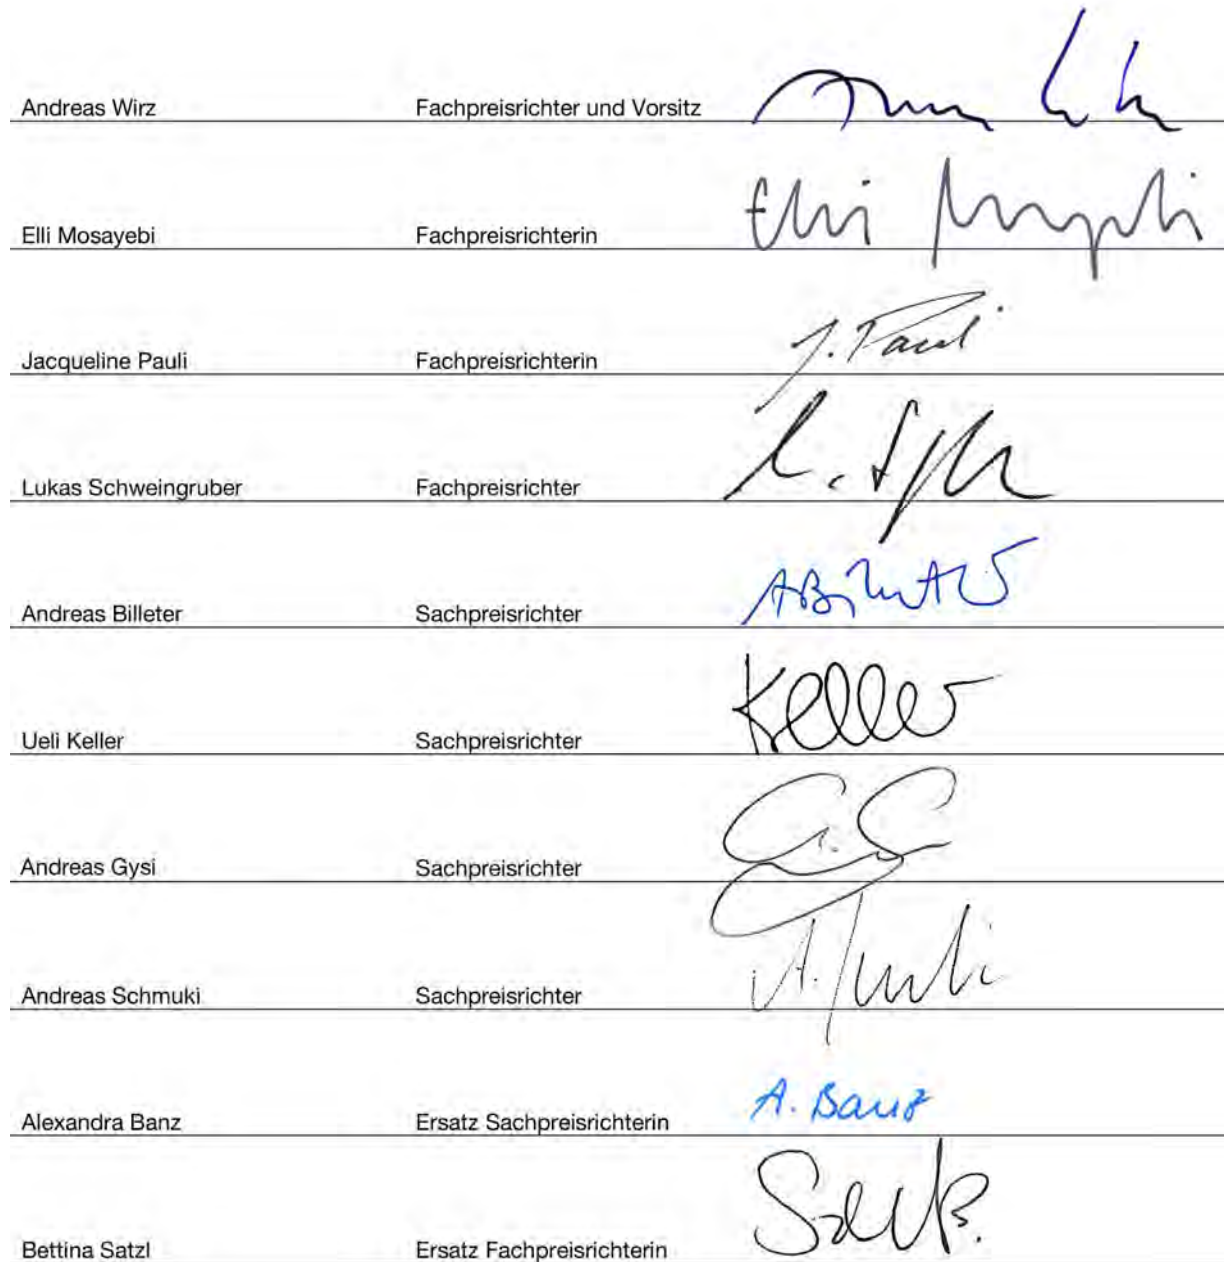 Andreas Wirz Fachpreisrichter und Vorsitz
Elli Mosayebi Fachpreisrichterin Elli Mosayebi
Jacqueline Pauli Fachpreisrichterin J. Pauli
Lukas Schweingruber Fachpreisrichter
Andreas Billeter Sachpreisrichter ABilleter
Ueli Keller Sachpreisrichter Keller
Andreas Gysi Sachpreisrichter
Andreas Schmuki Sachpreisrichter
Alexandra Banz Ersatz Sachpreisrichterin A. Banz
Bettina Satzl Ersatz Fachpreisrichterin